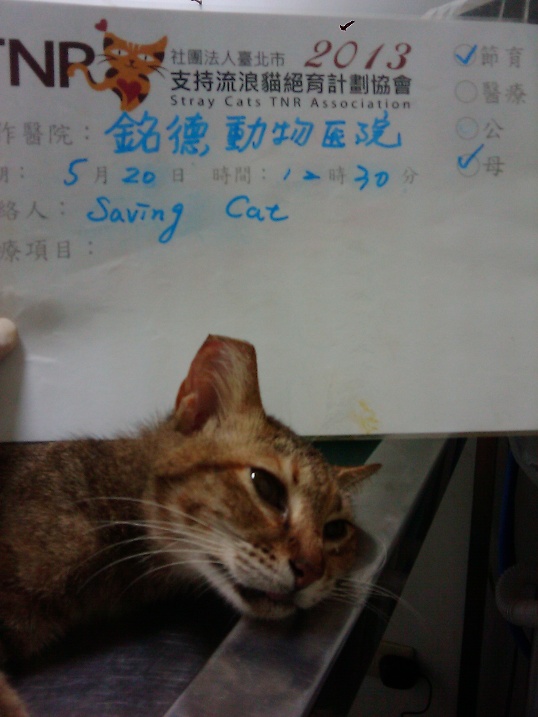 TNR 社團法人臺北市 2013
支持流浪貓絕育計劃協會
Stray Cats TNR Association
節育
醫療
公
母
作醫院：銘德動物医院
期：5月20日 時間：12時30分
絡人：Saving Cat
療項目：